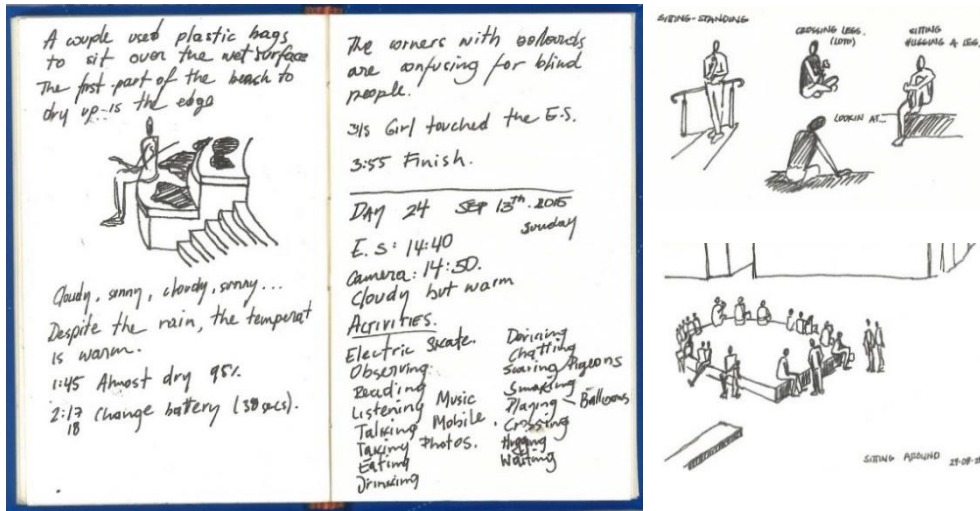 A couple used plastic bags
to sit over the wet surface
The first part of the beach to
dry up is the edge
Cloudy, sunny, cloudy, sunny...
Despite the rain, the temperat
is warm.
1:45 Almost dry 95%
2:17 Change battery (38 secs).
18
The corners with bollards
are confusing for blind
people.
Girl touched the E.S.
3:55 Finish.
DAY 24 SEP 13th. 2015
Sunday
E.S: 14:40
Camera: 14:50.
Cloudy but warm
ACTIVITIES.
Electric Skate.
Observing.
Reading
Listening Music
Talking Mobile.
Taking Photos.
Eating
Drinking
Chatting
Scaring Pigeons
Smoking
Playing - Balloons
Crossing
Hugging
Waiting
SITTING-STANDING
CROSSING LEGS.
(LOTO)
SITTING
HUGGING A LEG.
LOOKIN AT...
SITTING AROUND